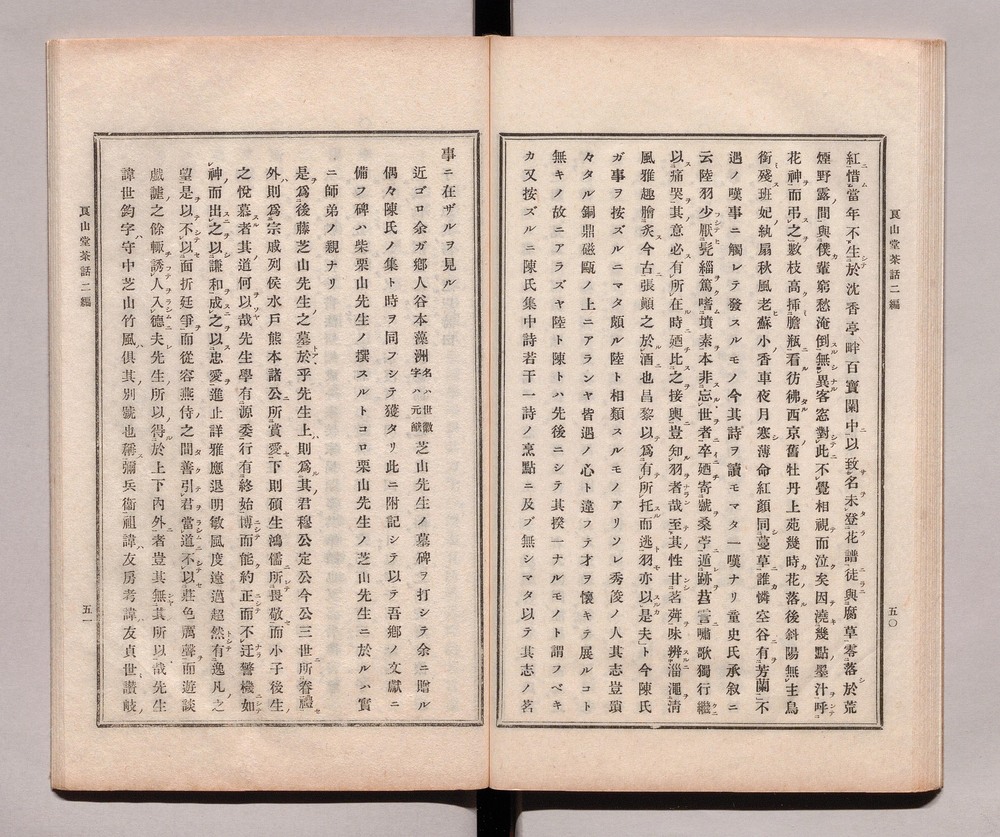 艮山堂茶話二編
五〇
紅惜當年不生於沈香亭畔百寶闌中以致名未登花譜徒與腐草零落於荒
煙野露間與僕輩窮愁淹倒無異客窓對此不覺相視而泣矣因澆幾點墨汁呼
花神而弔之數枝高揷膽瓶看彷彿西京舊牡丹上苑幾時花落後斜陽無主鳥
銜殘班妃紈扇秋風老蘇小香車夜月寒薄命紅顏同蔓草誰憐空谷有芳蘭不
遇ノ嘆事ニ觸レテ發スルモノ今其詩ヲ讀モマタ一嘆ナリ童史氏承叙ニ
云陸羽少厭髡緇篤嗜墳素本非忘世者卒廼寄號桑苧遁跡苕霅嘯歌獨行繼
以痛哭其意必有所在時廼比之接輿豈知羽者哉至其性甘茗荈味辨淄澠淸
風雅趣膾炙今古張顚之於酒也昌黎以爲有所托而逃羽亦以是夫ト今陳氏
ガ事ヲ按ズルニマタ頗ル陸ト相類スルモノアリソレ秀浚ノ人其志豈瑣
々タル銅鼎磁甌ノ上ニアランヤ皆遇ノ心ト違フテ才ヲ懷キテ展ルコト
無キノ故ニアラズヤ陸ト陳トハ先後ニシテ其揆一ナルモノト謂フベキ
カ又按ズルニ陳氏集中詩若干一詩ノ烹點ニ及ブ無シマタ以テ其志ノ茗
事ニ在ザルヲ見ル
近ゴロ余ガ鄕人谷本藻洲名ハ世徽字ハ元 芝山先生ノ墓碑ヲ打シテ余ニ贈ル
偶々陳氏ノ集ト時ヲ同フシテ獲タリ此ニ附記シテ以テ吾鄕ノ文獻ニ
備フ碑ハ柴栗山先生ノ撰スルトコロ栗山先生ノ芝山先生ニ於ルハ實
ニ師弟ノ親ナリ
是爲後藤芝山先生之墓於乎先生上則爲其君穆公定公今公三世所眷禮
外則爲宗戚列侯水戶熊本諸公所賞愛下則碩生鴻儒所畏敬而小子後生
之悅慕者其道何以哉先生學有源委行有終始博而能約正而不迂警機如
神而出之以謙和成之以忠愛進止詳雅應退明敏風度遠邁超然有逸凡之
望是以不以面折廷爭而從容燕侍之間善引君當道不以莊色厲聲而遊談
戲謔之餘輙誘人入德夫先生所以得於上下內外者豈其無其所以哉先生
諱世鈞字守中芝山竹風俱其別號也稱彌兵衞祖諱友房考諱友貞世讃岐
艮山堂茶話二編
五一